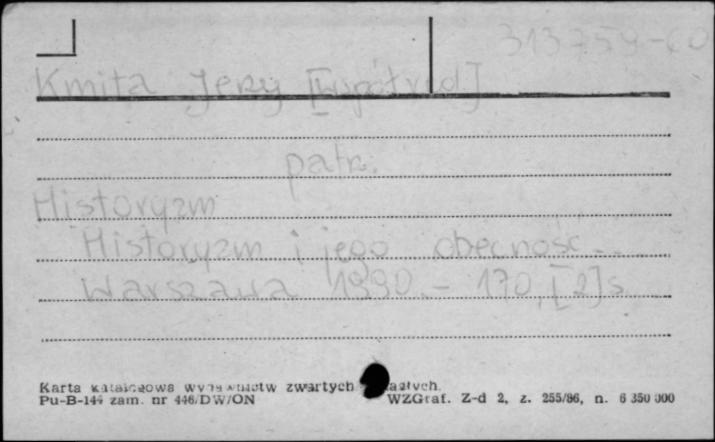 313759-60
Kmita Jerzy [współred]
patrz.
Historyzm
Historyzm i jego obecność...
Warszawa 1990.- 170,[2]s.
Karta katalogowa wydawnictw zwartych
Pu-B-144 zam. nr 446/DW/ON WZGraf. Z-d 2, z. 255/86, n. 6 350 000